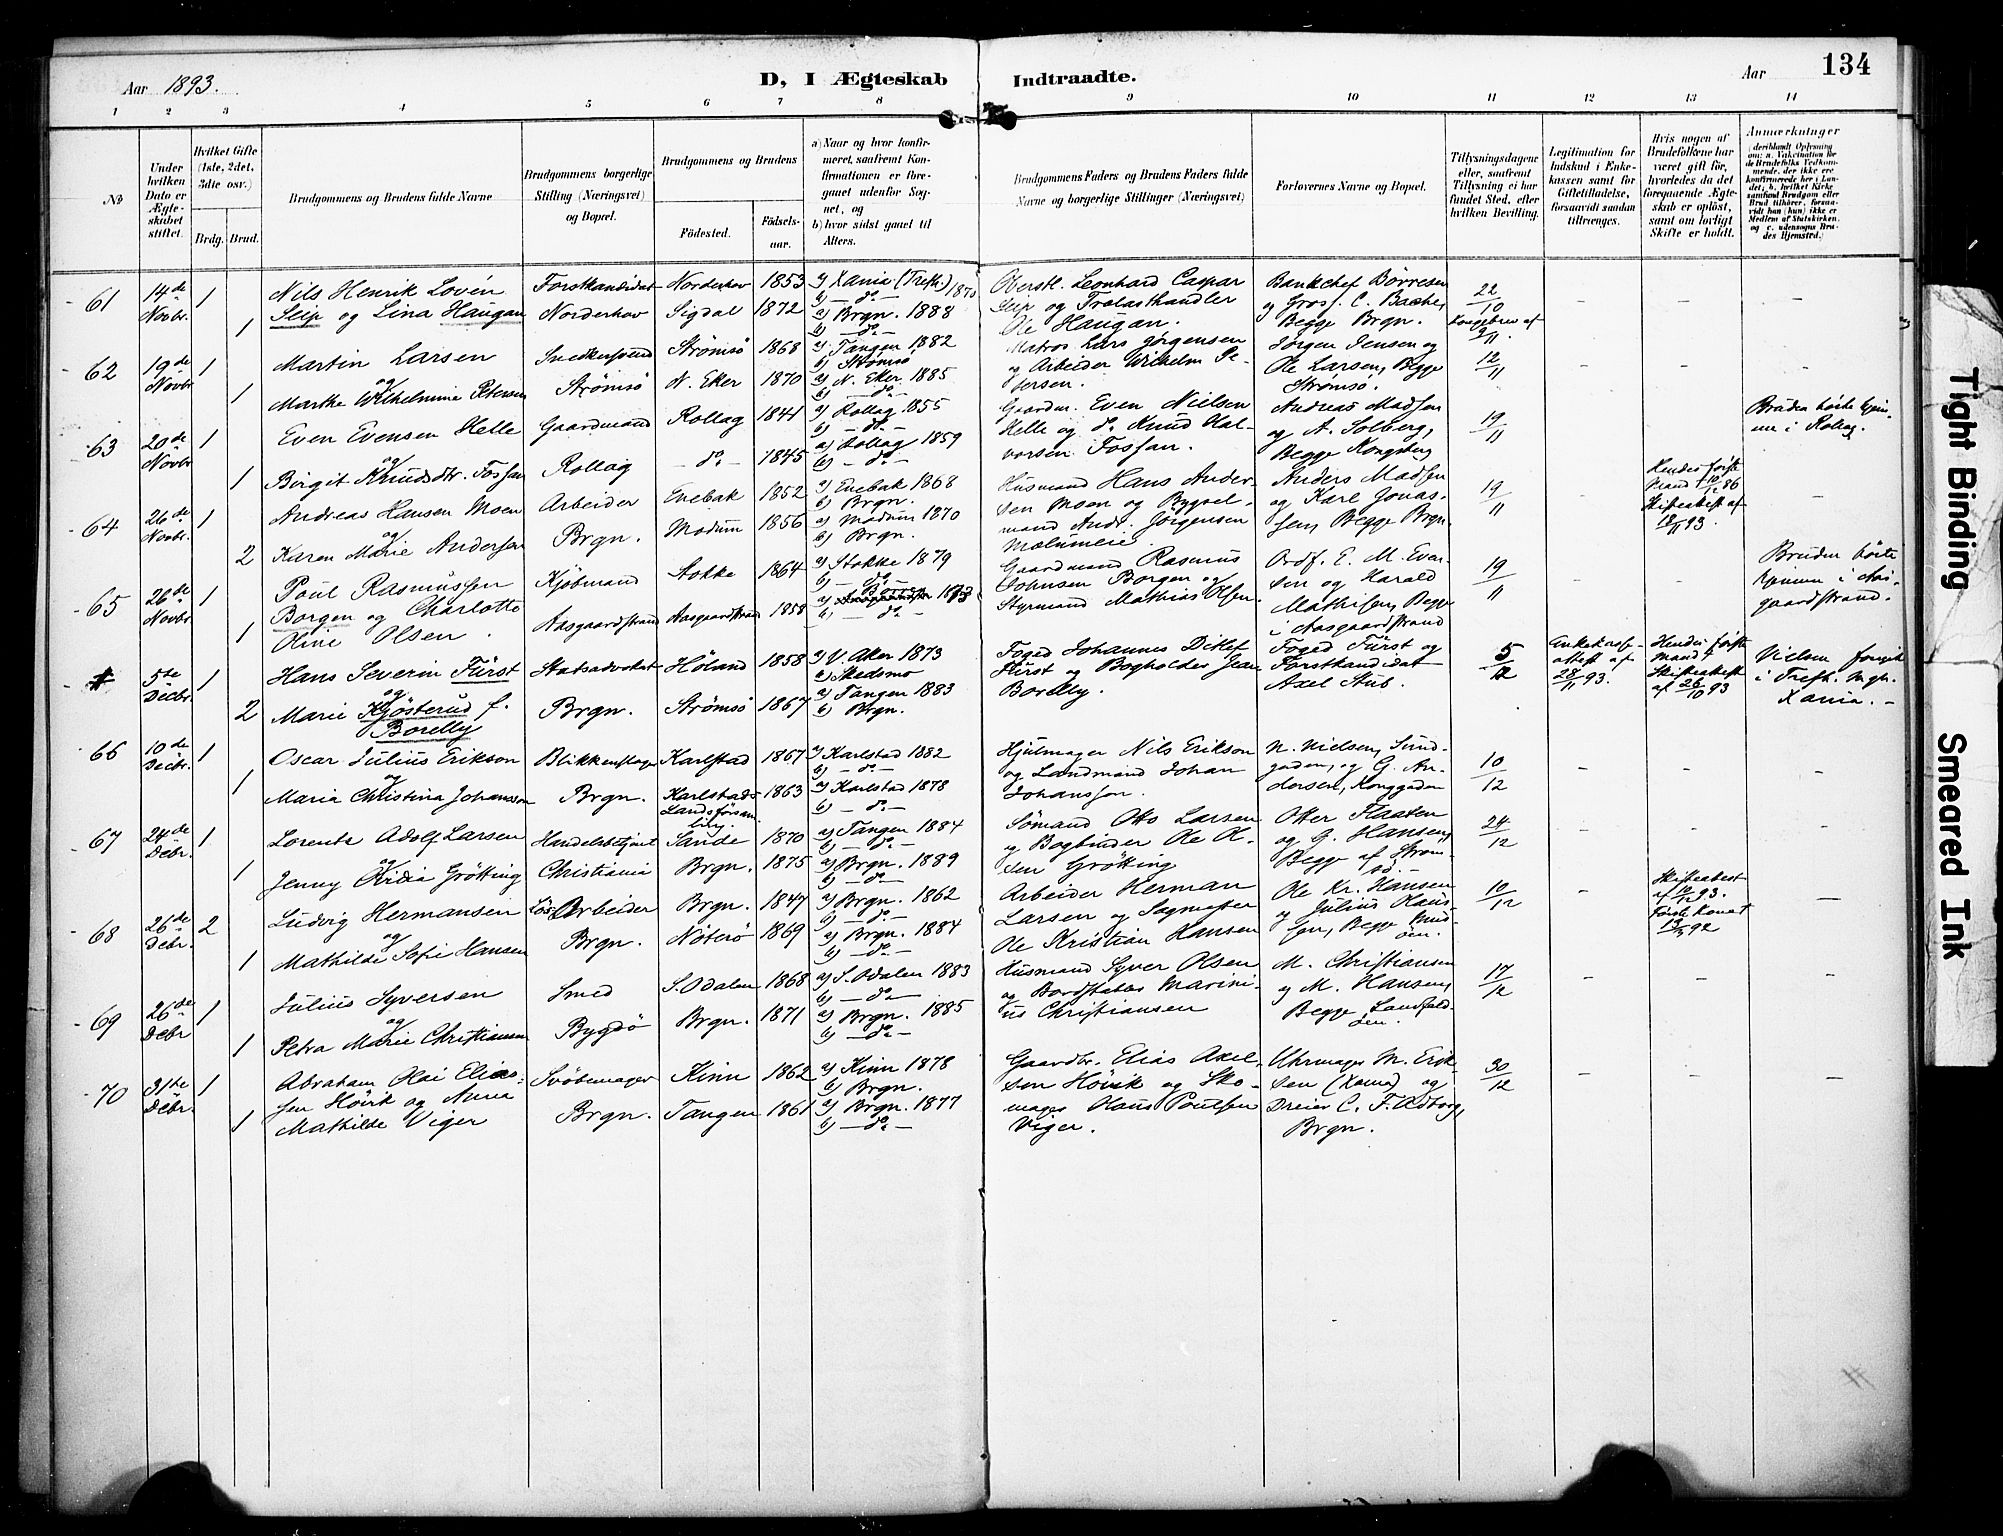 Aar 1893.
D, I Ægteskab Indtraadte.
Aar 134
1 2 3 4 5 6 7 8 9 10 11 12 13 14
No
Under hvilken Dato er Ægteskabet stiftet.
Hvilket Gifte (1ste, 2det, 3die osv.)
Brdg. Brud.
Brudgommens og Brudens fulde Navne
Brudgommens borgerlige Stilling (Næringsvei) og Bopæl.
Brudgommens og Brudens
Födested.
Födselsaar.
a) Naar og hvor konfirmeret, saafremt Konfirmationen er foregaaet udenfor Sognet, og
b) hvor sidst gaaet til Alters.
Brudgommens Faders og Brudens Faders fulde Navne og borgerlige Stillinger (Næringsvei)
Forlovernes Navne og Bopæl.
Tillysningsdagene eller, saafremt Tillysning ei har fundet Sted, efter hvilken Bevilling.
Legitimation for Indskud i Enkekassen samt for Giftetilladelse, forsaavidt saadan tiltrænges.
Hvis nogen af Brudefolkene har været gift før, hvorledes da det foregaaende Ægteskab er oplöst, samt om lovligt Skifte er holdt.
Anmærkninger
61 14de Novbr. 1 1
Nils Henrik Lovén
Seip og Lina Haugan
Forstkandidat Norderhov
Norderhov 1853
Sigdal 1872
a) Xania (Trefk.) 1870
b) — do —
a) Brgn. 1888
b) — do —
Oberstl. Leonhard Caspar
Seip og Trælasthandler
Ole Haugan.
Bankchef Börresen
og Gross. C. Bache,
Begge Brgn.
22/10
Kongebrev af 9/11
62 19de Novbr. 1 1
Martin Larsen
og
Marthe Wilhelmine Petersen
Snedkersvend Strömsö
Strömsö 1868
N. Eker 1870
a) Tangen 1882
b) Strömsö
a) N. Eker 1885
b) — do —
Matros Lars Jörgensen
og Arbeider Wilhelm Pe-
tersen.
Jörgen Jensen og
Ole Larsen, Begge
Strömsö.
12/11
63 20de Novbr 1 1
Even Evensen Helle
og
Birgit Knudsdtr. Fossan
Gaardmand Rollag
Rollag 1841
— do — 1845
a) Rollag 1855
b) — do —
a) Rollag 1859
b) — do —
Gaardm. Even Nielsen
Helle og do. Knud Hal-
vorsen Fossan.
Andreas Madsen
og A. Solberg,
Begge Kongsberg
19/11
Bruden hörte hjem-
me i Rollag
64 26de Novbr. 1 2
Andreas Hansen Moen
og
Karen Marie Andersen
Arbeider Brgn.
Enebak 1852
Modum 1856
a) Enebak 1868
b) Brgn.
a) Modum 1870
b) Brgn.
Husmand Hans Ander-
sen Moen og Bygsel-
mand Andr. Jörgensen
Anders Madsen
og Karl Jonas-
sen, Begge Brgn.
19/11
Hendes förste
Mand † 10/12 86
Skifteattest af
18/11 93.
65 26de Novbr. 1 1
Poul Rasmussen
Borgen og Charlotte
Oline Olsen
Kjöbmand Aasgaardstrand
Stokke 1864
Aasgaardstrand 1858
a) Stokke 1879
b) — do —
a) Borre 1873
b) — do —
Gaardmand Rasmus
Johnsen Borgen og
Styrmand Mathias Olsen.
Ordf. E. M. Even-
sen og Harald
Mathisen, Begge
i Aasgaardstrand
19/11
Bruden hörte
hjemme i Aas-
gaardstrand.
5te Decbr. 1 2
Hans Severin Fürst
og
Marie Kjösterud f.
Borelly
Statsadvokat Brgn.
Höland 1858
Strömsö 1867
a) V. Aker 1873
b) Skedsmo
a) Tangen 1883
b) Brgn.
Foged Johannes Ditlef
Fürst og Bogholder Jean
Borelly.
Foged Fürst og
Forstkandidat
Axel Stub.
5/12
Enkekasse-
attest af
28/11 93.
Hendes förste
Mand †
Skifteattest
af 26/10 93
Vielsen foregik
i Trefk. Mgh.
Xania. —
66 10de Decbr. 1 1
Oscar Julius Erikson
og
Maria Christina Johansson
Blikkenslager Brgn.
Karlstad 1867
Karlstads Landsförsamling. 1863
a) Karlstad 1882
b) — do —
a) Karlstad 1878
b) — do —
Hjulmager Nils Erikson
og Landmand Johan
Johansson.
N. Nielsen, Sund-
gaden, og G. An-
dersen, Konggaden
10/12
67 24de Debr. 1 1
Lorents Adolf Larsen
og
Jenny Ovidia Grötting
Handelsbetjent Christiania
Sande 1870
Brgn. 1875
a) Tangen 1884
b) — do —
a) Brgn. 1889
b) — do —
Sömand Otto Larsen
og Bogbinder Ole Ol-
sen Grötting
Otter Flaaten
og G. Hansen,
Begge af Ström-
sö. —
24/12
68 26de Debr. 2 1
Ludvig Hermansen
og
Mathilde Sofie Hansen
Lös Arbeider Brgn.
Brgn. 1847
Nöterö 1869
a) Brgn. 1862
b) — do —
a) Brgn. 1884
b) — do —
Arbeider Herman
Larsen og Sagmester
Ole Kristian Hansen
Ole Kr. Hansen
og Julius Han-
sen, Begge
10/12
Skifteattest
af 10/12 93.
Förste Kone †
92
69 26de Debr 1 1
Julius Syversen
og
Petra Marie Christiansen
Smed Bygdö
S. Odalen 1868
Brgn. 1871
a) S. Odalen 1883
b) — do —
a) Brgn. 1885
b) — do —
Husmand Syver Olsen
og Bordstabler Marini-
us Christiansen
M. Christiansen
og M. Hansen,
Begge Landfald-
öen.
17/12
70 31te Debr. 1 1
Abraham Olai Elias-
sen Hövik og Anna
Mathilde Viger
Svöbemager Brgn.
Kinn 1862
Tangen 1861
a) Kinn 1878
b) Brgn.
a) Brgn. 1877
b) — do —
Gaardbr. Elias Axel-
sen Hövik og Sko-
mager Hans Poulsen
Viger.
Uhrmager M. Erik-
sen (Xania) og
Dreier C. F. Adborg,
Brgn.
30/12
Tight Binding
Smeared Ink